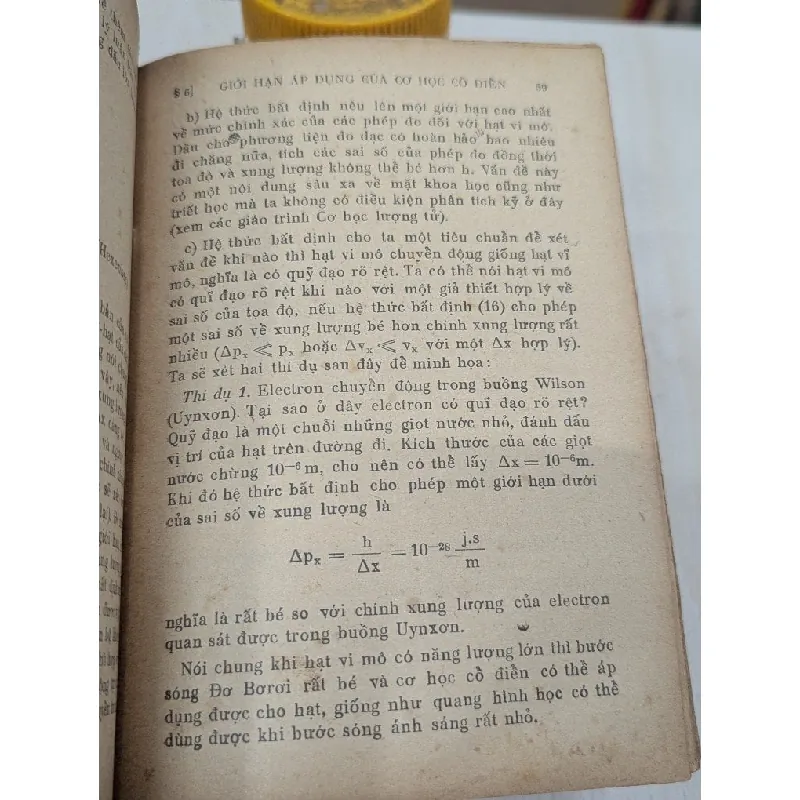 § 6] GIỚI HẠN ÁP DỤNG CỦA CƠ HỌC CỔ ĐIỂN 89
b) Hệ thức bất định nêu lên một giới hạn cao nhất
về mức chính xác của các phép đo đối với hạt vi mô.
Dẫu cho phương tiện đo đạc có hoàn hảo bao nhiêu
đi chăng nữa, tích các sai số của phép đo đồng thời
toạ độ và xung lượng không thể bé hơn h. Vấn đề này
có một nội dung sâu xa về mặt khoa học cũng như
triết học mà ta không có điều kiện phân tích kỹ ở đây
(xem các giáo trình Cơ học lượng tử).
c) Hệ thức bất định cho ta một tiêu chuẩn để xét
vấn đề khi nào thì hạt vi mô chuyển động giống hạt vĩ
mô, nghĩa là có quỹ đạo rõ rệt. Ta có thể nói hạt vi mô
có quĩ đạo rõ rệt khi nào với một giả thiết hợp lý về
sai số của tọa độ, nếu hệ thức bất định (16) cho phép
một sai số về xung lượng bé hơn chính xung lượng rất
nhiều (Δpₓ ≪ pₓ hoặc Δvₓ ≪ vₓ với một Δx hợp lý).
Ta sẽ xét hai thí dụ sau đây để minh họa:
Thí dụ 1. Electron chuyển động trong buồng Wilson
(Uynxơn). Tại sao ở đây electron có quĩ đạo rõ rệt?
Quỹ đạo là một chuỗi những giọt nước nhỏ, đánh dấu
vị trí của hạt trên đường đi. Kích thước của các giọt
nước chừng 10⁻⁶m, cho nên có thể lấy Δx = 10⁻⁶m.
Khi đó hệ thức bất định cho phép một giới hạn dưới
của sai số về xung lượng là
Δpₓ = h/Δx = 10⁻²⁸ j.s/m
nghĩa là rất bé so với chính xung lượng của electron
quan sát được trong buồng Uynxơn.
Nói chung khi hạt vi mô có năng lượng lớn thì bước
sóng Đơ Bơrơi rất bé và cơ học cổ điển có thể áp
dụng được cho hạt, giống như quang hình học có thể
dùng được khi bước sóng ánh sáng rất nhỏ.